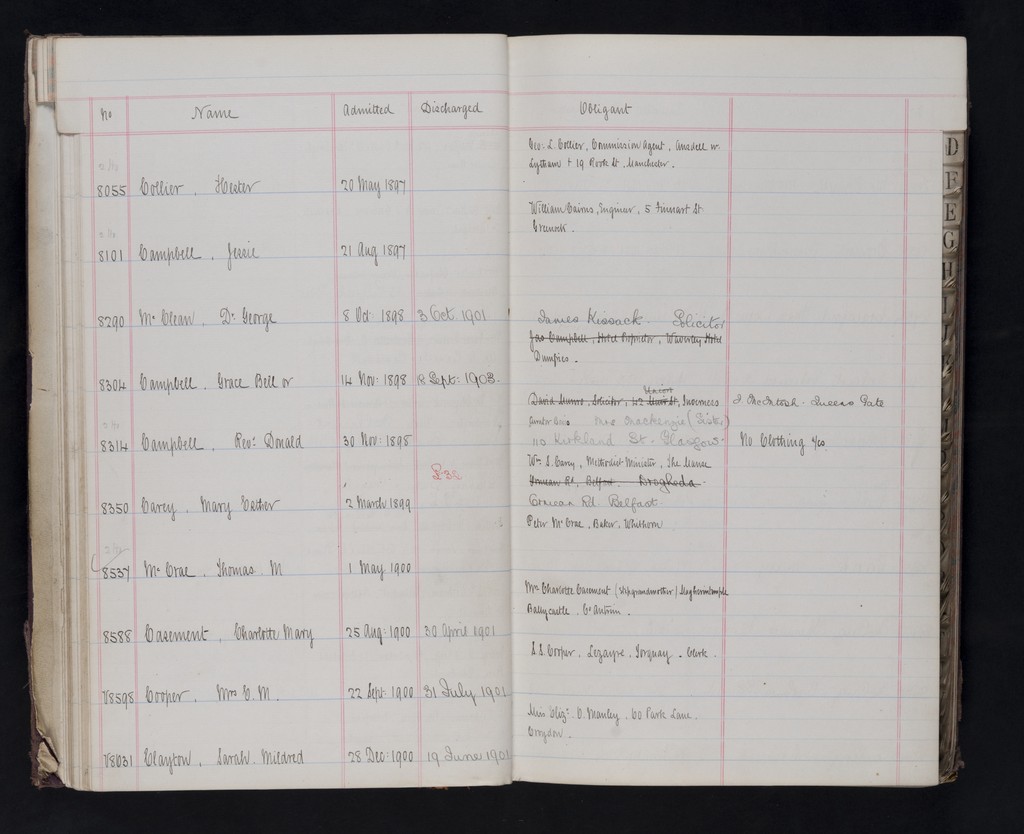 No Name Admitted Discharged Obligant
Geo: L. Collier, Commission Agent, Ansdell nr.
Lytham & 19 Rook St. Manchester.
8055 Collier, Hester 20 May 1897
William Cairns, Engineer, 5 Finnart St
Greenock.
8101 Campbell, Jessie 21 Aug 1897
8290 Mc Clean, Dr. George 8 Oct 1898 3 Oct. 1901 James Kissack. Solicitor
Jas Campbell, Hotel Proprietor, Waverley Hotel
Dumfries.
8304 Campbell, Grace Bell or 14 Nov: 1898 Sept: 1903.
Union
David Munro, Solicitor, 42 St, Inverness J. McIntosh. Queens Gate
Mrs Mackenzie (Sister)
8314 Campbell, Revd. Donald 30 Nov: 1898 110 Kirkland St. Glasgow. No Clothing
Wm. S. Carey, Methodist Minister, The Manse
£38
Ormeau Rd, Belfast. Drogheda.
8350 Carey, Mary Esther 2 March 1899 Ormeau Rd. Belfast.
Peter Mc Crae, Baker, Whithorn
8537 Mc Crae, Thomas M 1 May 1900
Mrs Charlotte Casement (Stepgrandmother) Magherintemple
Ballycastle. Co Antrim.
8588 Casement, Charlotte Mary 25 Aug: 1900 30 April 1901
S.S. Cooper, Lezayre, Torquay. Clerk.
V8598 Cooper, Mrs C. M. 22 Sept: 1900 31 July 1901
Miss Eliz: O. Manley, 60 Park Lane.
Croydon.
V8631 Clayton, Sarah Mildred 28 Dec: 1900 19 June 1901
D
F
E
G
H
I